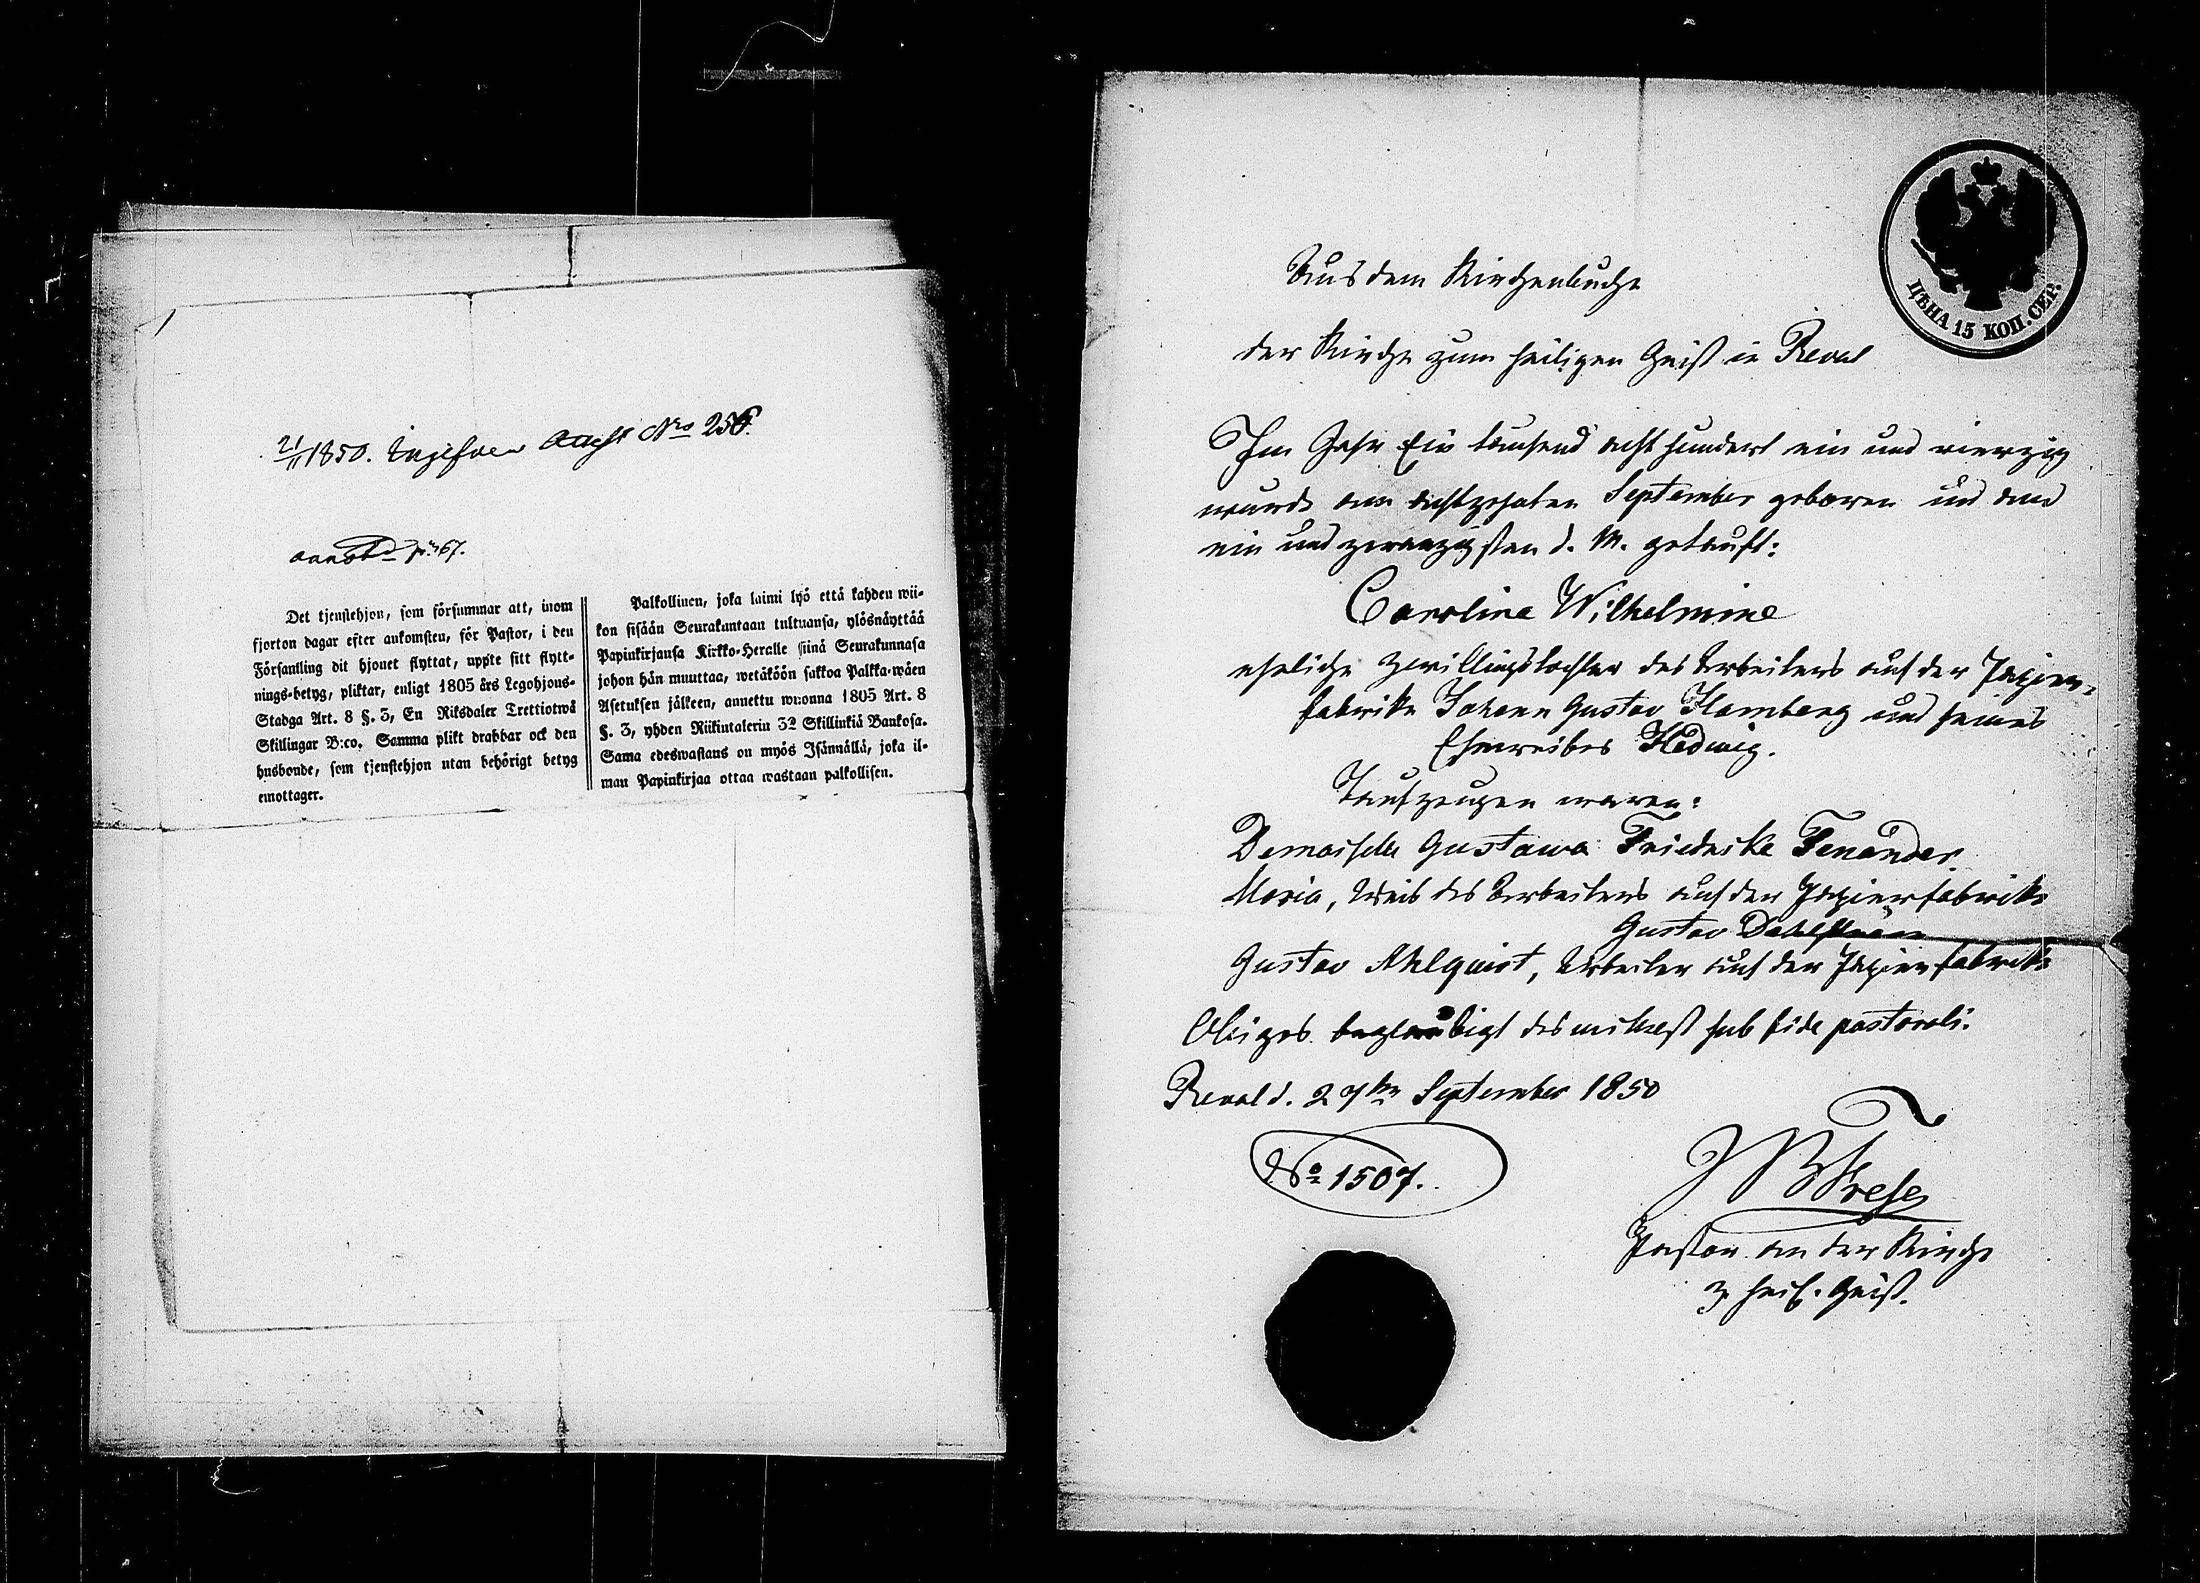 21/11 1850. Nro 256.
p: 167.
Det tjenstehjon, som försummar att, inom
fjorton dagar efter ankomsten, för Pastor, i den
Församling dit hjonet flyttat, uppte sitt flytt-
nings-betyg, pliktar, enligt 1805 års Legohjons-
Stadga Art. 8 §. 3, En Riksdaler Trettiotwå
Skillingar B:co. Samma plikt drabbar ock den
husbonde, som tjenstehjon utan behörigt betyg
emottager.
Palkollinen, joka laimi lyö että kahden wii-
kon sisään Seurakuntaan tultuansa, ylösnäyttää
Papinkirjansa Kirkko-Heralle siinä Seurakunnasa
johon hän muuttaa, wetäköön sakkoa Palkka-wäen
Asetuksen jälkeen, annettu wuonna 1805 Art. 8
§. 3, yhden Riikintalerin 32 Skillinkiä Bankosa.
Sama edeswastaus on myös Isännällä, joka il-
man Papinkirjaa ottaa wastaan palkollisen.
ЦѢНА 15 КОП. СЕР.
Aus dem Kirchenbuche
der Kirche zum heiligen Geist in Reval
Im Jahr Ein tausend acht hundert ein und vierzig
wurde am achtzehnten September geboren und am
ein und zwanzigsten d. M. getauft:
Carolina Wilhelmine
eheliche Zwillingstochter des Arbeiters auf der Papier-
fabrike Johann Gustav Flamberg und seines
Eheweibes Hedwig.
Taufzeugen waren:
Demoiselle Gustawa Friedrike Tenander
Maria, Weib des Arbeiters auf der Papierfabrike
Gustav Dahlström
Gustav Ahlquist, Arbeiter auf der Papierfabrike
Obiges beglaubigt desmittelst sub fide pastorali.
Reval d. 27ten September 1850
No 1507.
Frese
Pastor an der Kirche
z. heil. Geist.